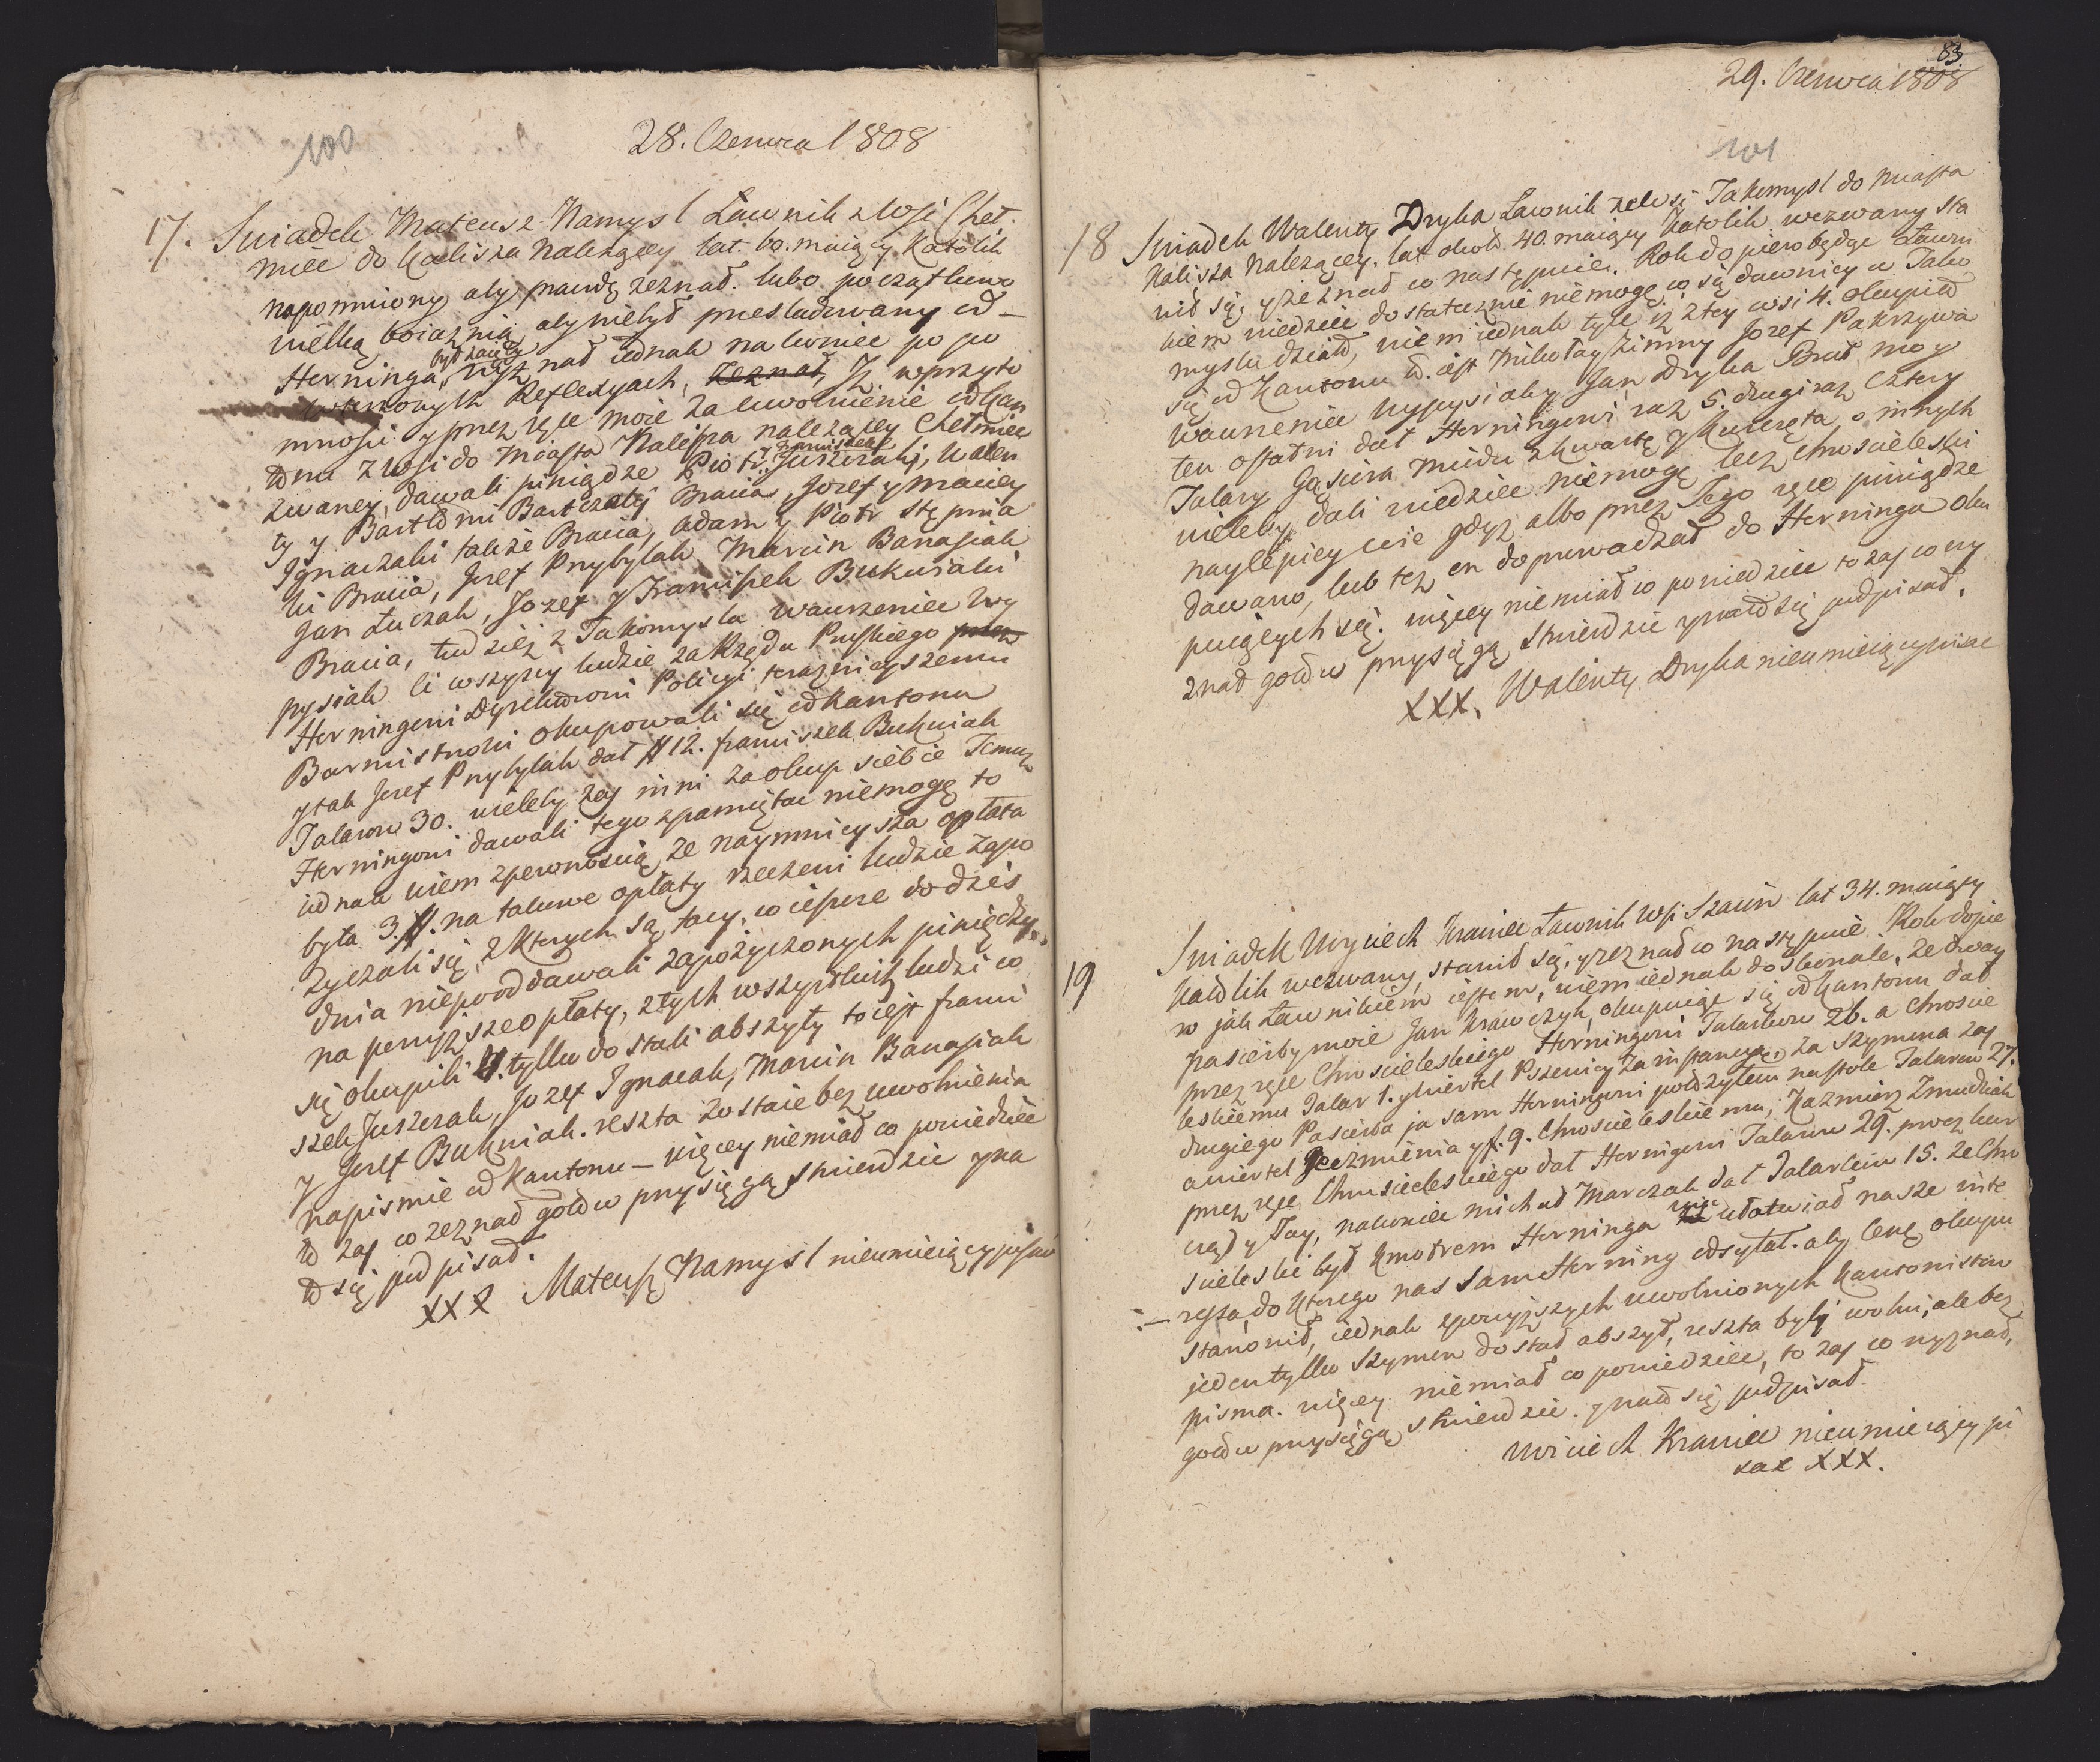 100
28. Czerwca 1808
17. Swiadek Mateusz Namysl Ławnik z Wsi Cheł-
mce do Kalisza Nalezącey lat. 60. maiący Katolik
napomniony aby prawdę zeznał. lubo początkowo
wielką boiaznią aby niebył presladowany od –
Herninga, był zaięty nad iednak na koniec po po
Reflexyach, zeznał, Jż w przyto
mnosci y przez ręce moie za uwolnienie od Kan
tonu z Wsi do Miasta Kalisza nalezącey Chełmce
zwaney, dawali piniądze Piotr, y Franciszek Juszczaki, Walen
ty y Bartłomi Bartczaki Bracia, Jozef y Maciey
Ignaczaki takze Bracia, Adam y Piotr Stępnia
ki Bracia, Jozef Przybylak Marcin Banasiak
Jan Łuczak, Jozef y Franciszek Bukwiaki
Bracia, tudziez z Takomysla Wawrzeniec Wy
pysiak ci wszyscy ludzie za Rządu Pruskiego przez
Herningowi Dyrektorowi Policyi, teraznieyszemu
Burmistrzowi okupowali się od Kantonu
y tak Jozef Przybylak dał # 12. franciszek Bukwiak
Talarow 30. wieleby zas inni za okup siebie Temuz
Herningowi dawali tego spamiętac niemogę to
iednak wiem z pewnoscią, ze naymnieysza opłata
była 3. #. na takowe opłaty rzeczeni ludzie zapo
zyczali się, z Ktorych są tacy, co ieszcze do dzis
dnia niepooddawali zapozyczonych piniędzy
na powyzsze opłaty, z tych wszystkich ludzi co
się okupili 4. tylko dostali abszyty to iest franci
szek Juszczak, Jozef Ignacak, Marcin Banasiak
y Jozef Bukwiak. reszta zostaie bez uwolnienia
napismie od Kantonu – więcey niemiał co powiedziec
to zas co zeznał gotow przysięgą stwierdzic y na
to się podpisał.
XXX Mateusz Namysl nieumieiący pisać
83.
29. Czerwca 1808
101
18 Swiadek Walenty Dryka Ławnik ze Wsi Takomysl do Miasta
Kalisza Nalezącey. lat około 40. maiący Katolik wezwany sta
wił się, y zeznał co następuie. Rok dopiero będąc Ławni
kiem wiedziec dostatecznie niemogę co się dawniey w Tako
myslu działo, wiem iednak tyle iz z tey wsi 4. okupiło
się od Kantonu to. iest Mikołay Zimny Jozef Pakrzywa
Wawrzeniec Wypysiak y Jan Dryka Brat moy
ten ostatni dał Herningowi raz 5. drugi raz Cztery
Talary Gąsiora Miodu 2 kwartę y kurczęta o innych
wieleby dali wiedziec niemogę lecz Chroscieleski
naylepiey wie gdyz albo przez Jego ręce piniądze
dawano, lub tez on doprowadzał do Herninga oku
puiących się. więcey niemiał co powiedziec to zas co wy
znał gotow przysięgą stwierdzic y na to się podpisał.
XXX. Walenty Dryka nieumieiący pisac
19 Swiadek Woyciech Kraniec Ławnik Wsi Szaw lat 34. maiący
Katolik wezwany, stawił się, y zeznał co następuie Rok dopie
ro jak Ławnikiem iestem, wiem iednak doskonale, ze dway
pasierby moie Jan Krawczyk, okupuiąc się od Kantonu dał
przez ręce Chroscieleskiego Herningowi Talarkow 26. a Chroscie
leskiemu Talar 1. y wiertel Pszenicy za instancyą, za Szymona zas
drugiego Pasierba ja sam Herningowi połozyłem na stole Talarow 27.
a wiertel Jeczmienia y f. 9. Chroscieleskiemu, Kazmierz Zmudziak
przez ręce Chroscieleskiego dał Herningowi Talarow 29. procz kur
cząt y Jay, nakoniec Michał Marczak dał Talarkow 15. ze Chro
scieleski był Kmotrem Herninga więc ułatwiał nasze inte
ressa, do Ktorego nas sam Herning odsyłał. aby Cenę okupu
stanowił, iednak z powyzszych uwolnionych Kantonistow
jeden tylko Szymon dostał abszyt, reszta byli wolni, ale bez
pisma. więcey niemiał co powiedziec, to zas co wyznał,
gotow przysięgą stwierdzic. y na to się podpisał.
Woiciech Kraniec nieumieiący pi
sac XXX.